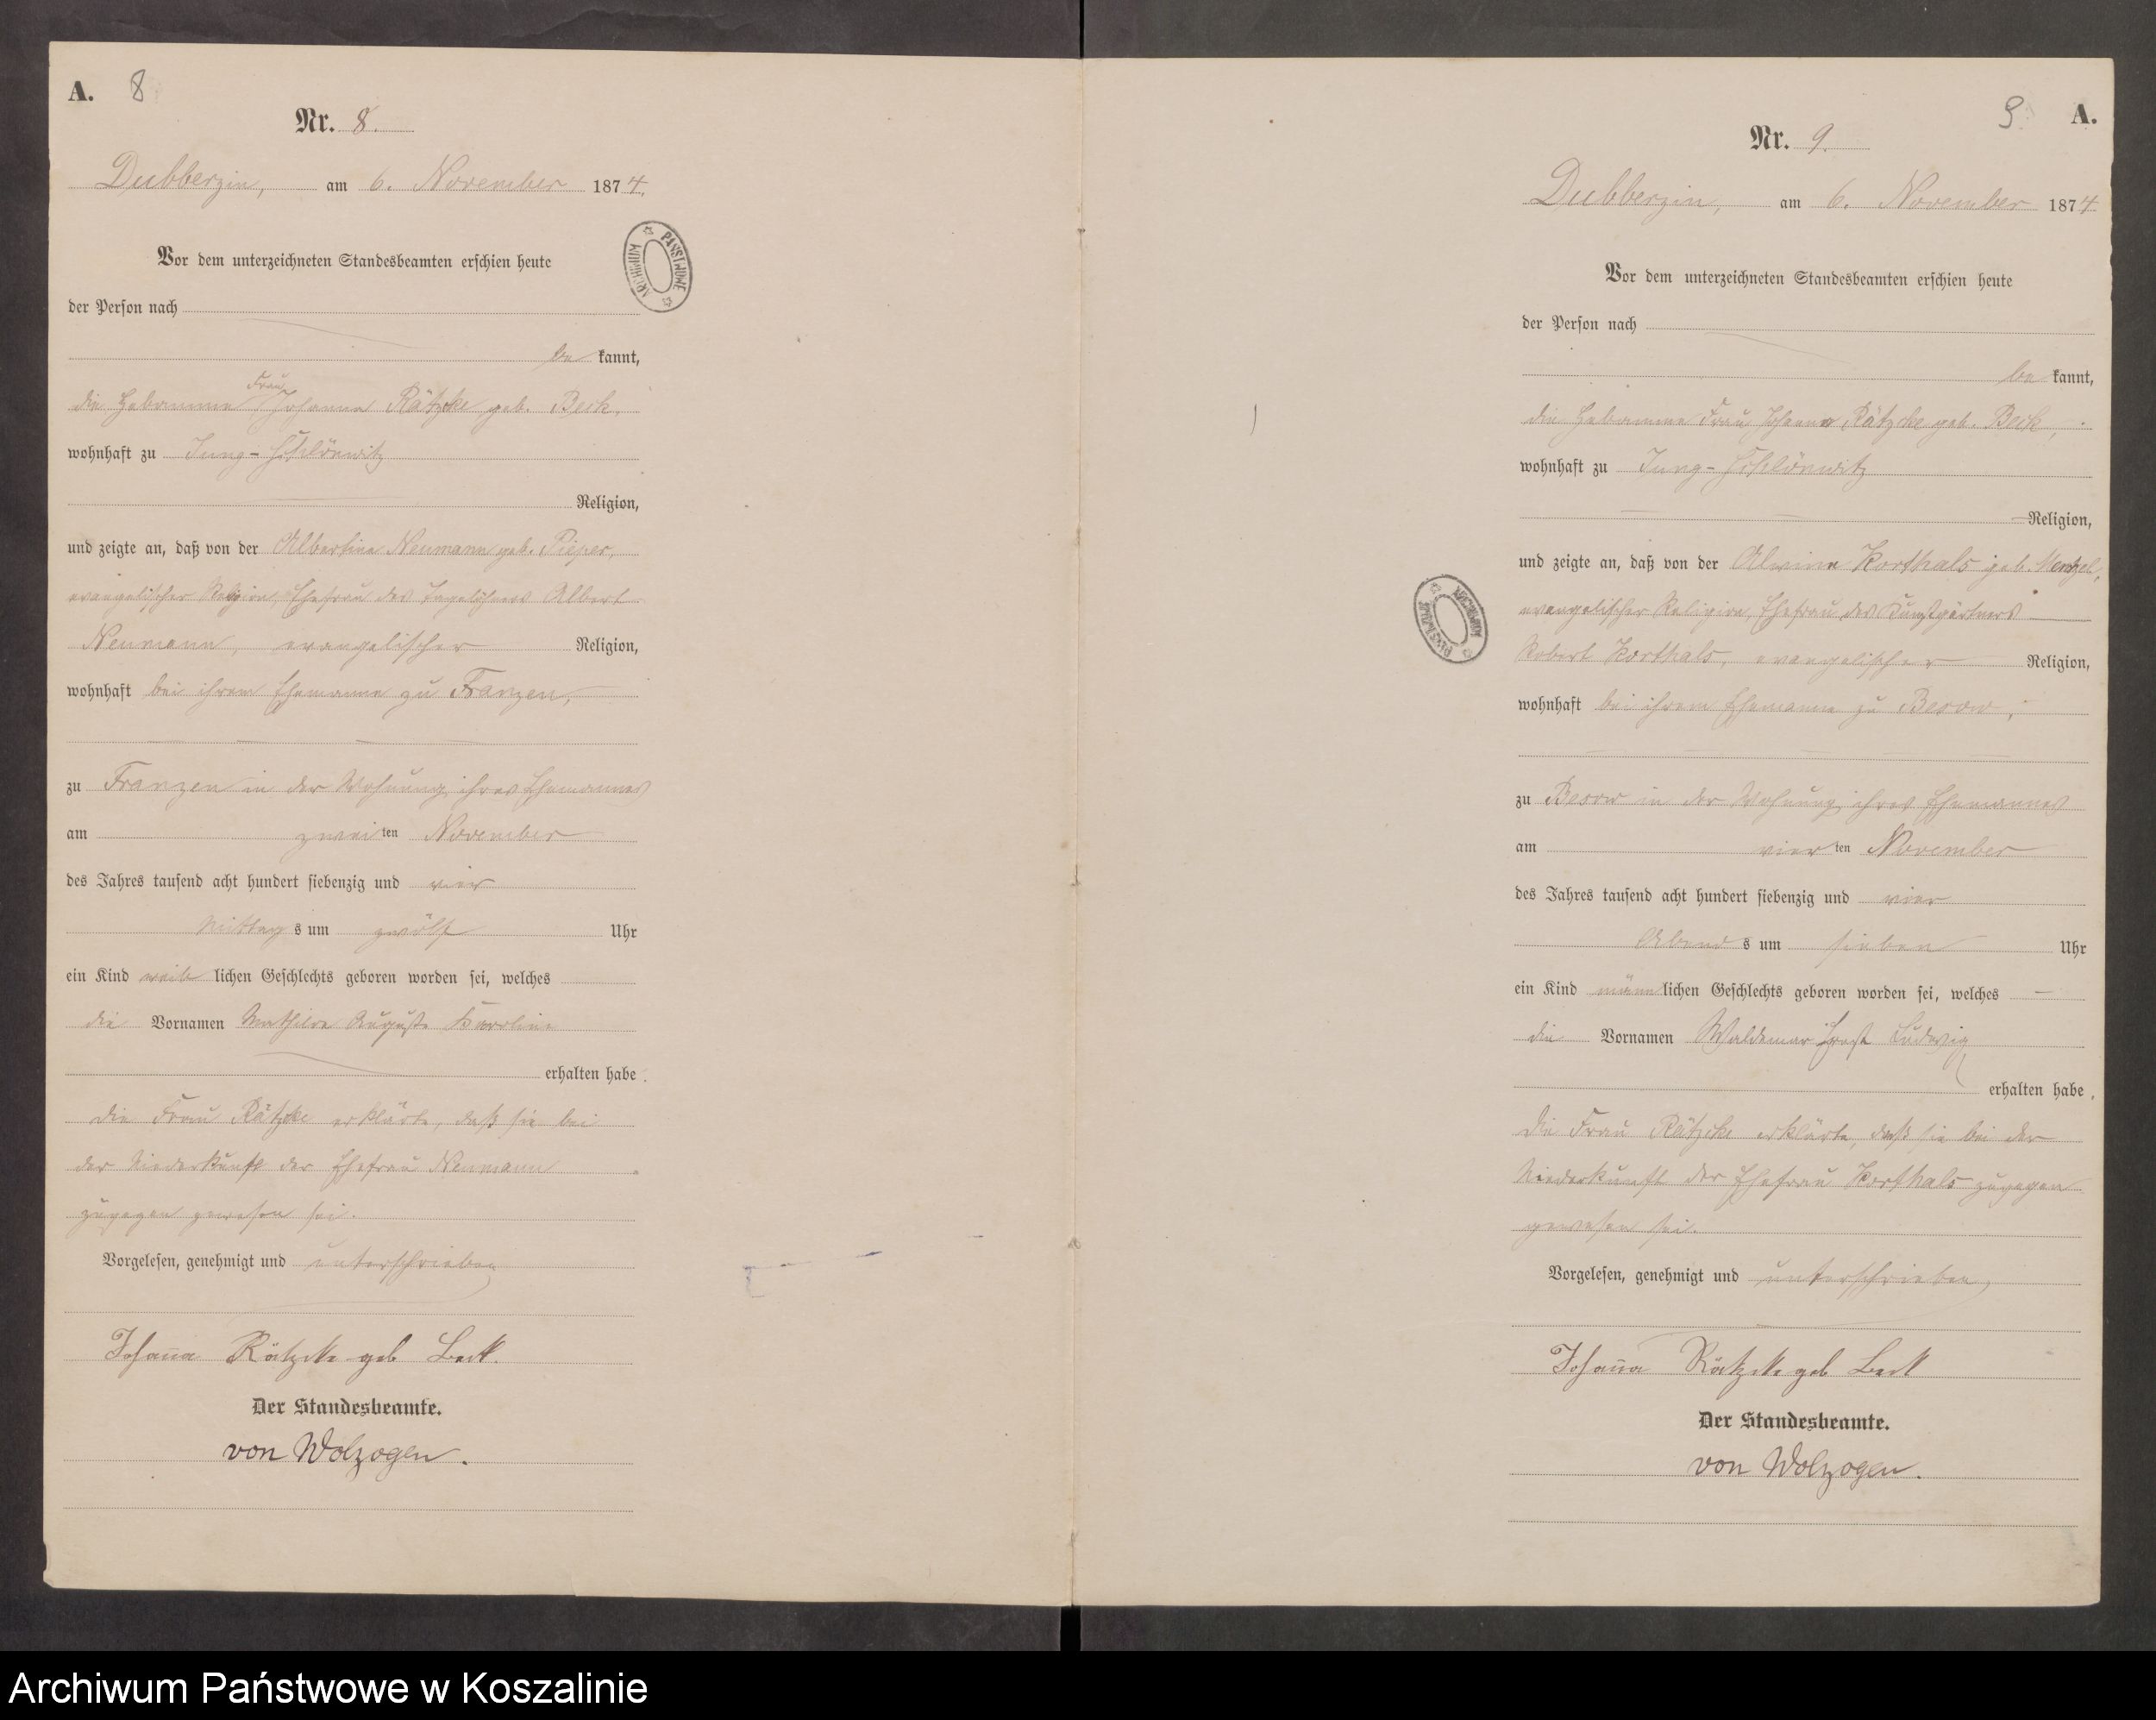 A. 8
Nr. 8.
Dubberzin, am 6. November 1874.
ARCHIWUM PAŃSTWOWE
Vor dem unterzeichneten Standesbeamten erschien heute
der Person nach
be kannt,
Frau
die Hebamme Johanna Rätzke geb. Beck,
wohnhaft zu Jung-Schlönwitz
Religion,
und zeigte an, daß von der Albertine Neumann geb. Pieper,
evangelischer Religion, Ehefrau des Tagelöhners Albert
Neumann, evangelischer Religion,
wohnhaft bei ihrem Ehemanne zu Franzen,
zu Franzen in der Wohnung ihres Ehemannes
am zwei ten November
des Jahres tausend acht hundert siebenzig und vier
Mittag s um zwölf Uhr
ein Kind weib lichen Geschlechts geboren worden sei, welches
die Vornamen Mathilde Auguste Karoline
erhalten habe.
Die Frau Rätzke erklärte, daß sie bei
der Niederkunft der Ehefrau Neumann
zugegen gewesen sei.
Vorgelesen, genehmigt und unterschrieben
Johanna Rätzke geb Beck.
Der Standesbeamte.
von Wolzogen.
9 A.
Nr. 9.
Dubberzin, am 6. November 1874
Vor dem unterzeichneten Standesbeamten erschien heute
der Person nach
be kannt,
die Hebamme Frau Johanna Rätzke geb. Beck,
wohnhaft zu Jung-Schlönwitz
Religion,
und zeigte an, daß von der Alwine Korthals geb. Mentzel,
evangelischer Religion, Ehefrau des Kunstgärtners
Robert Korthals, evangelischer Religion,
ARCHIWUM PAŃSTWOWE
wohnhaft bei ihrem Ehemanne zu Besow,
zu Besow in der Wohnung ihres Ehemannes
am vier ten November
des Jahres tausend acht hundert siebenzig und vier
Abend s um sieben Uhr
ein Kind männ lichen Geschlechts geboren worden sei, welches
die Vornamen Waldemar Ernst Ludwig
erhalten habe.
Die Frau Rätzke erklärte, daß sie bei der
Niederkunft der Ehefrau Korthals zugegen
gewesen sei.
Vorgelesen, genehmigt und unterschrieben,
Johanna Rätzke geb Beck
Der Standesbeamte.
von Wolzogen.
Archiwum Państwowe w Koszalinie